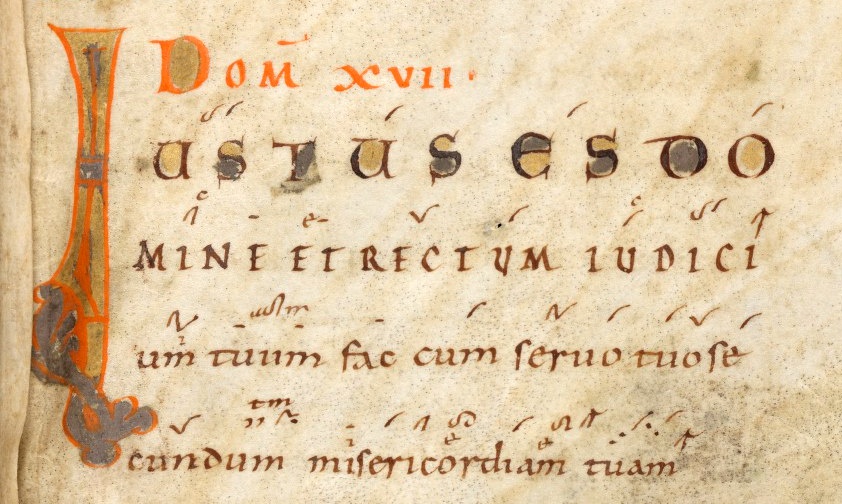 DOM̄ XVII
IUSTUS ES DO
MINE ET RECTUM IUDICI
um tuum fac cum seruo tuo se
cundum misericordiam tuam